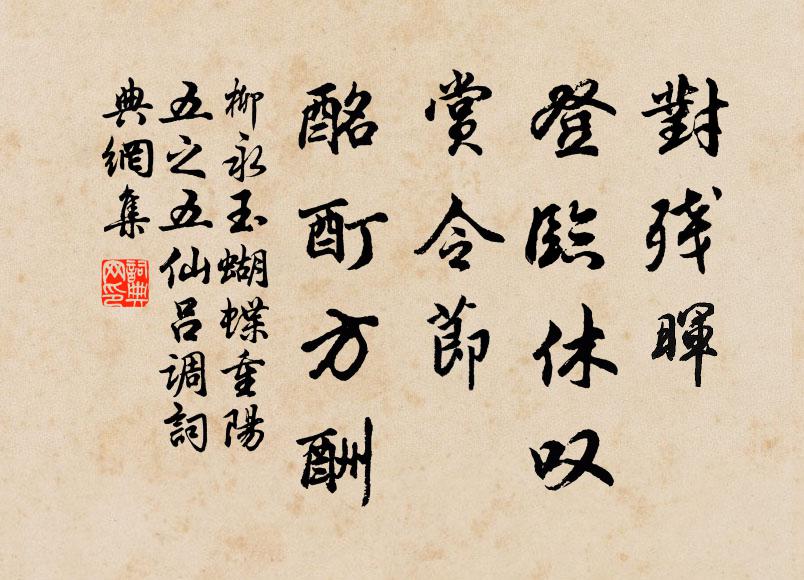 對残暉
登臨休叹
赏令節
酩酊方酬
柳永玉蝴蝶重陽
五之五仙吕调詞
典網集
詞典網印